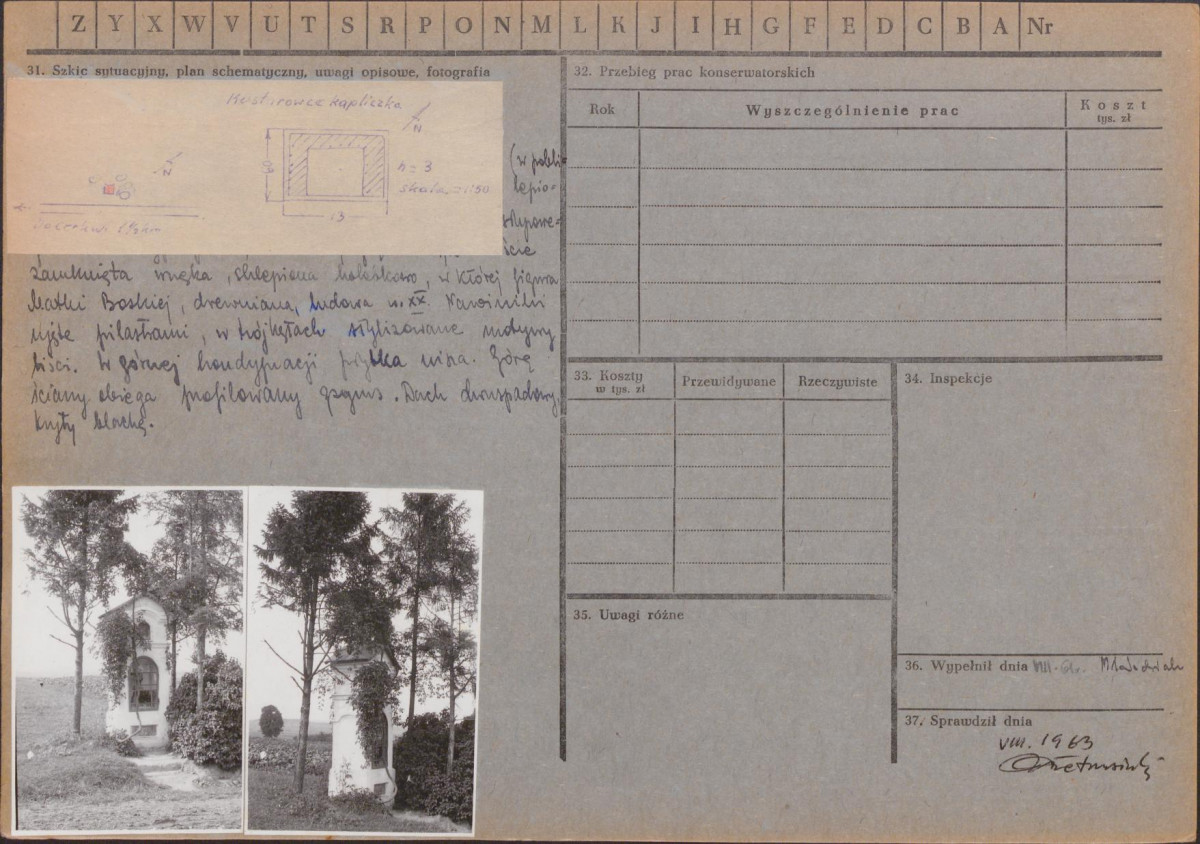 Z Y X W V U T S R P O N M L K J I H G F E D C B A Nr
31. Szkic sytuacyjny, plan schematyczny, uwagi opisowe, fotografia
kapliczka
N
N
h = 3
skala = 1:50
13
(w pobli-
lepio-
ście
zamknięta wnęka, sklepiona kolebkowo, w której figura
Matki Boskiej, drewniana, ludowa w. XX. Narożniki
ujęte pilastrami, w trójkątach stylizowane motywy
liści. W górnej kondygnacji płytka nisza. Górę
ściany obiega profilowany gzyms. Dach dwuspadowy,
kryty blachą.
32. Przebieg prac konserwatorskich
Rok
Wyszczególnienie prac
Koszt
tys. zł
33. Koszty
w tys. zł
Przewidywane
Rzeczywiste
34. Inspekcje
35. Uwagi różne
36. Wypełnił dnia
37. Sprawdził dnia
VIII. 1963